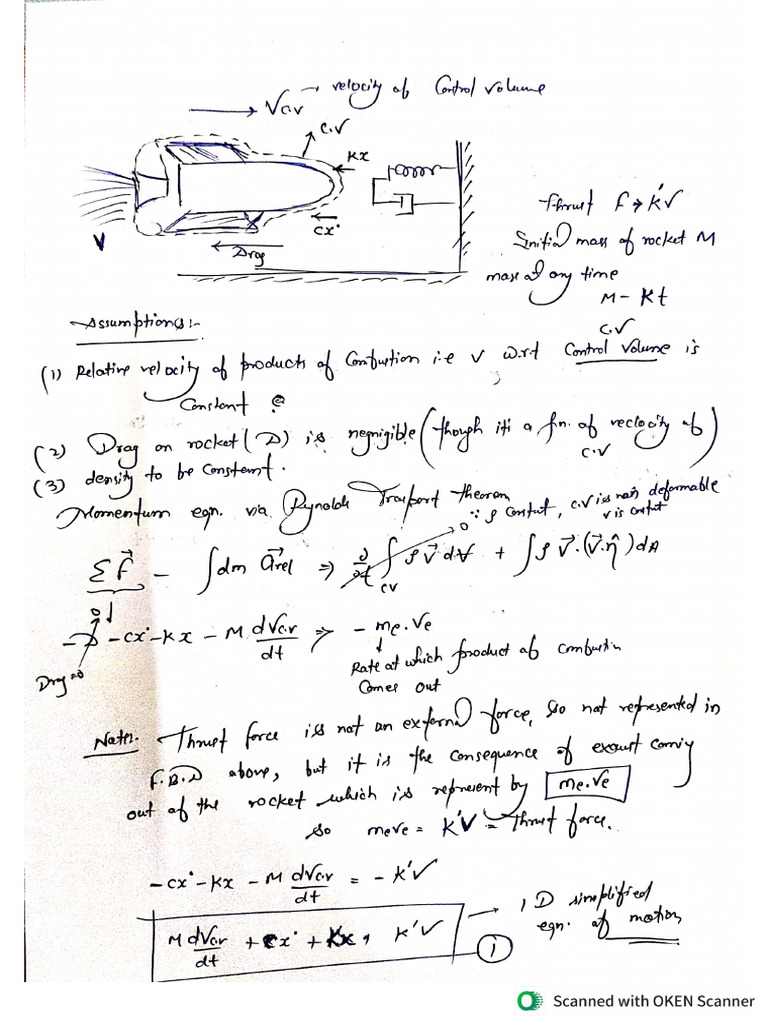 Vc.v → velocity of Control volume
C.V
Kx
Cẋ
Drag
V
Thrust F → K'V
Initial mass of rocket M
mass at any time
M - Kt
Assumptions:-
C.V
(1) Relative velocity of products of Combustion i.e V w.r.t Control Volume is
Constant
(2) Drag on rocket (D) is negnigible (though it's a fn. of veclocity of)
C.V
(3) density to be Constant.
Momentum eqn. via Rynolds Trasport theorem
0 ∵ ρ Contant, C.V is non deformable
V is contat
ΣF⃗ - ∫dm a⃗rel ⇒ ∂/∂t ∫CV ρ V⃗ d∀ + ∫ρ V⃗.(V⃗.η̂) dA
0
-D - cẋ - Kx - M dVc.v/dt ⇒ - me.Ve
Drag=0
Rate at which product of combustin
Comes out
Note:. Thrust force is not an external force, so not represented in
F.B.D above, but it is the consequence of exaust coming
out of the rocket which is represent by me.Ve
so meve = K'V = Thrust force.
-cẋ - Kx - M dVc.v/dt = - K'V
M dVc.v/dt + cẋ + Kx = K'V → 1 D simplified
eqn. of motion
(i)
Scanned with OKEN Scanner